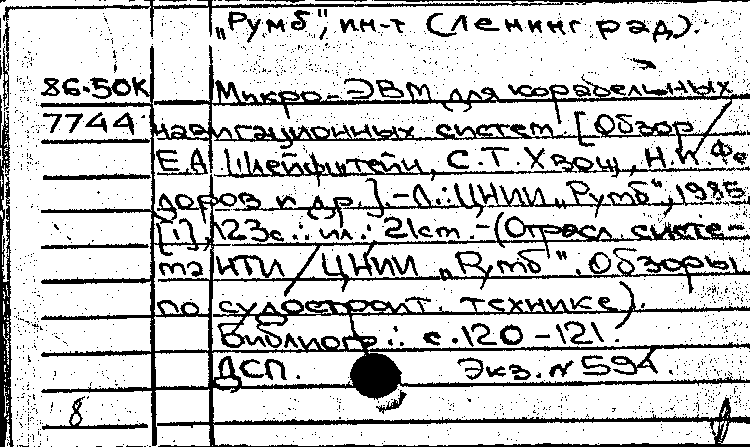 „Румб", ин-т (Ленинград).
86-50К Микро-ЭВМ для корабельных
7744 навигационных систем [Обзор /
Е.А. Шейфштейн, С.Т. Хвощ, Н.И. Фе
доров и др.]. – Л.: ЦНИИ „Румб", 1985
[1], 123с.: ил.; 21см. – (Отрасл. систе-
ма НТИ / ЦНИИ „Румб". Обзоры
по судостроит. технике).
Библиогр.: с. 120-121.
ДСП. Экз. № 594.
8